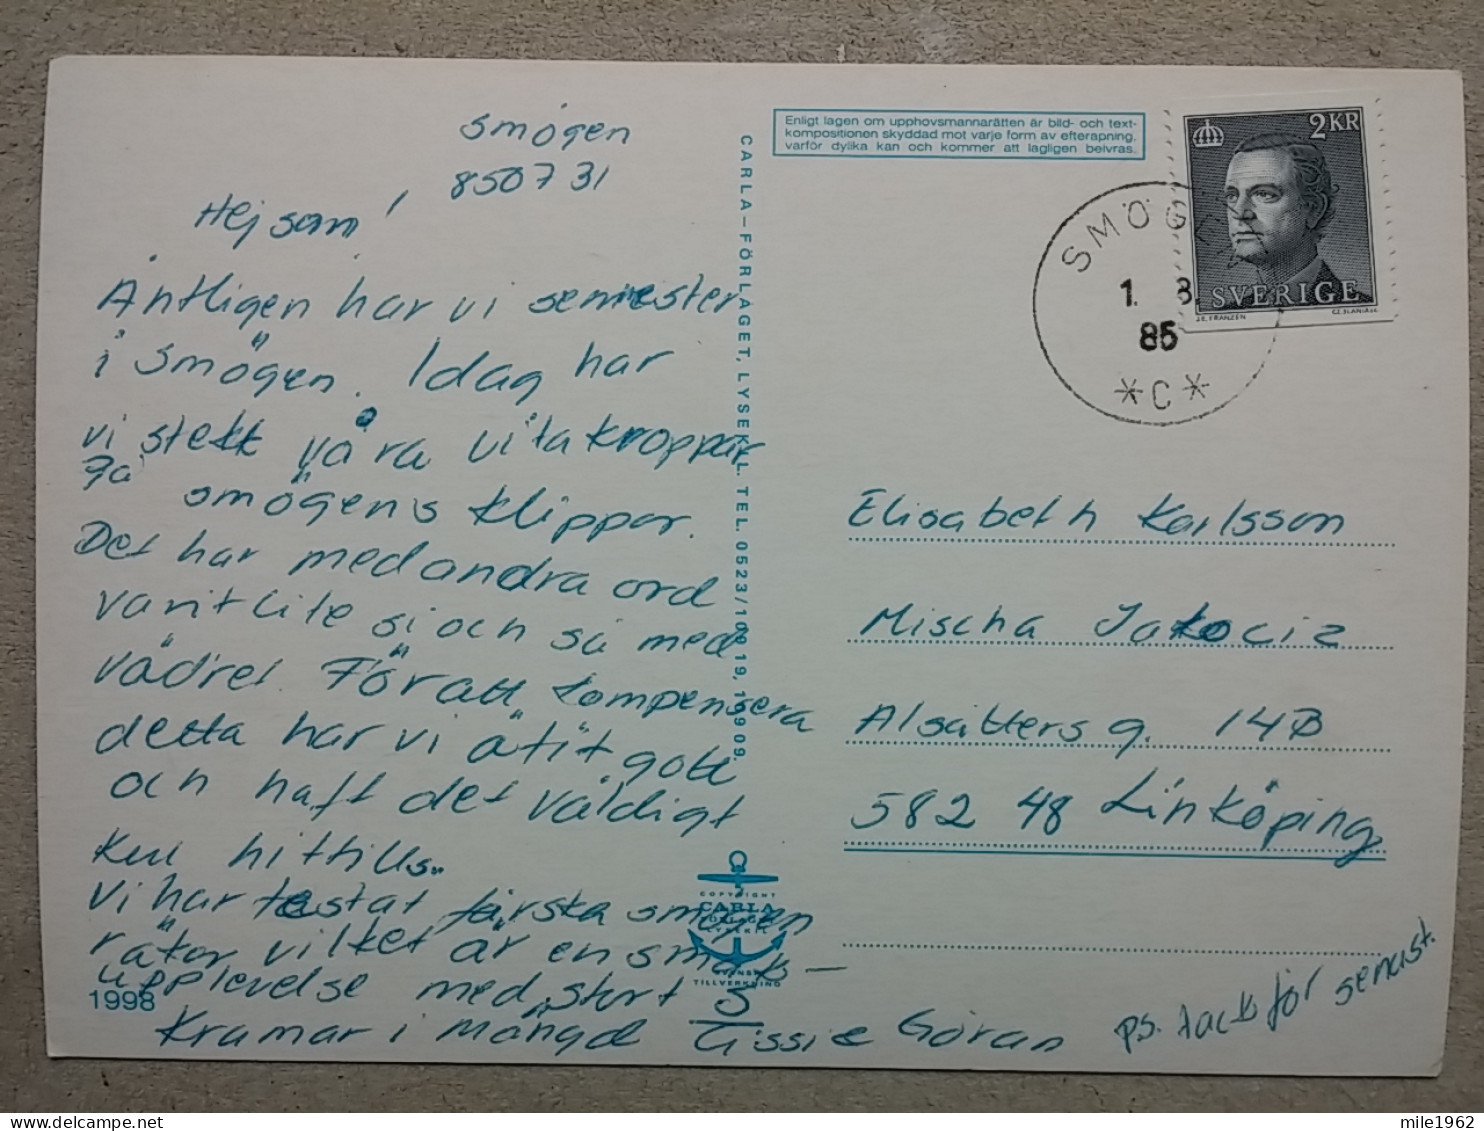 Smögen
850731
Hejsan!
Äntligen har vi semester
i Smögen. Idag har
vi stekt våra vita kroppar
på smögens klippor.
Det har med andra ord
varit lite si och så med
vädret. För att kompensera
detta har vi ätit gott
och haft det väldigt
kul hittills.
Vi har testat färska smögen
räkor vilket är en smak-
upplevelse med stort S
Kramar i mängd Gissi & Göran
ps. tack för senast.
1998
CARLA-FÖRLAGET, LYSEKIL. TEL. 0523/109 19, 109 09.
COPYRIGHT
CARLA
FÖRLAGET
LYSEKIL
SVENSK
TILLVERKNING
Enligt lagen om upphovsmannarätten är bild- och text-
kompositionen skyddad mot varje form av efterapning,
varför dylika kan och kommer att lagligen beivras.
2KR
SVERIGE
J.E. FRANZÉN CZ. SLANIA sc
SMÖGEN
1. 8.
85
*C*
Elisabeth Karlsson
Mischa
Alsätters g. 14B
582 48 Linköping
mile1962